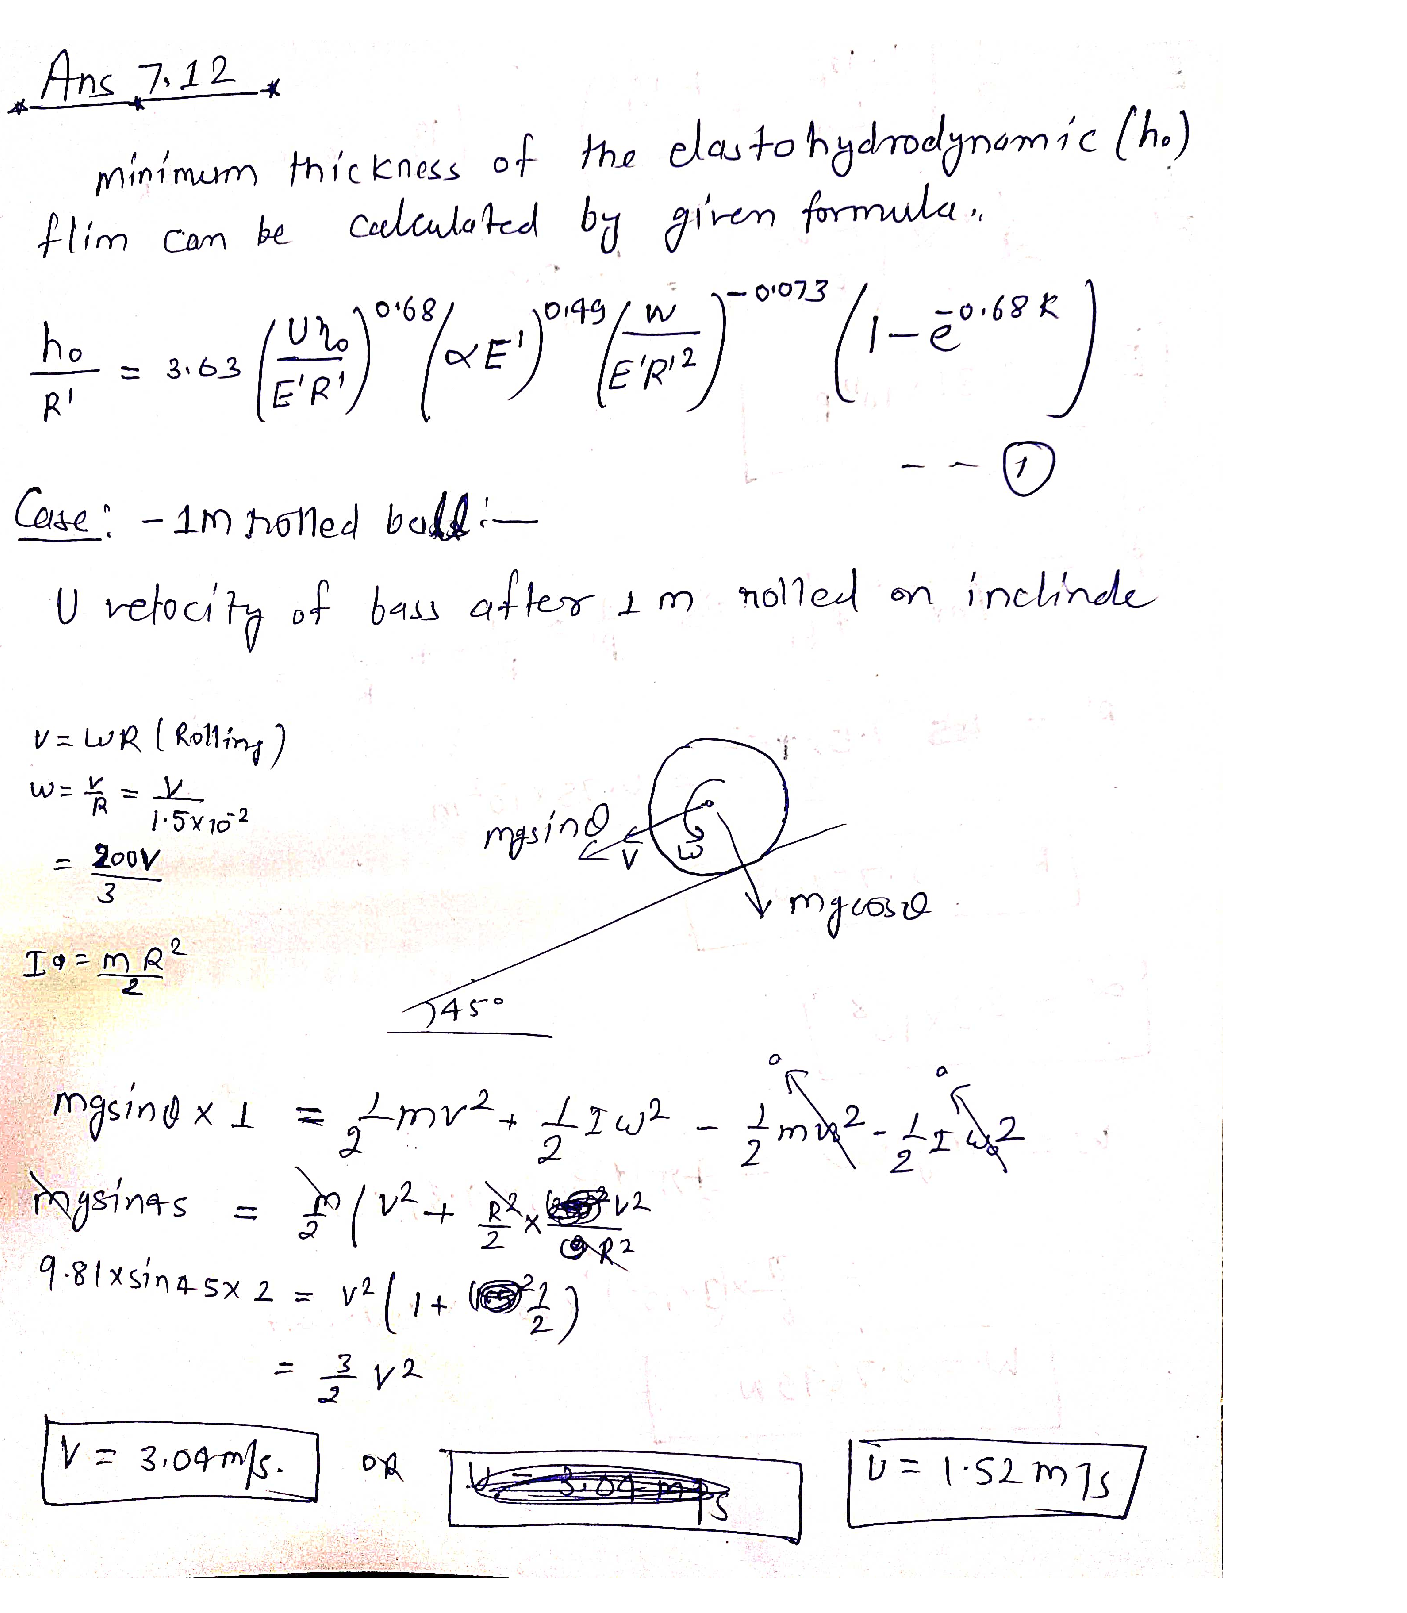 Ans 7.12
minimum thickness of the elastohydrodynamic (h₀)
flim can be calculated by given formula.
h₀/R' = 3.63 (Uη₀/E'R')^0.68 (αE')^0.49 (W/E'R'²)^-0.073 (1-e^-0.68k)
-- ①
Case: - 1m rolled ball:-
U velocity of bass after 1 m rolled on inclinde
V = WR (Rolling)
W = V/R = V/1.5×10⁻²
= 200V/3
I = mR²/2
mgsinθ
V
ω
mgcosθ
45°
mgsinθ × 1 = 1/2 mv² + 1/2 Iω² - 1/2 mv₀² - 1/2 Iω₀²
0
0
mgsin45 = m/2 (v² + R²/2 × v²/R²
9.81×sin45×2 = v² (1 + 1/2)
= 3/2 v²
V = 3.04m/s. OR U = 1.52 m/s